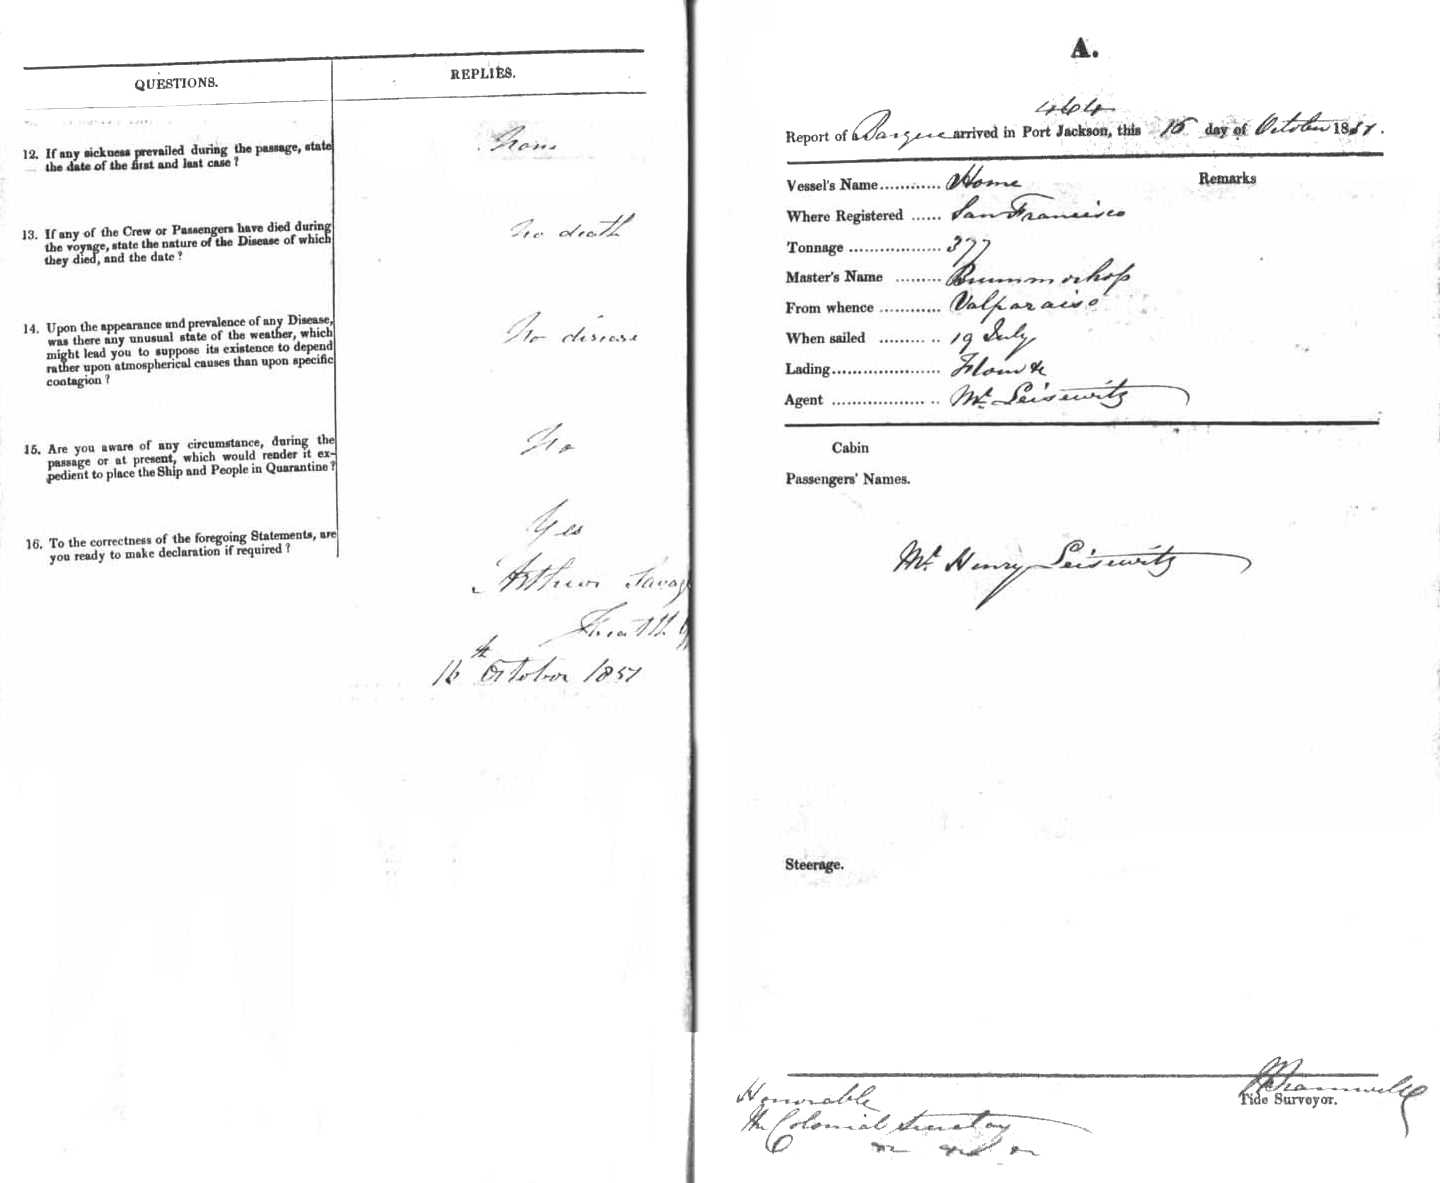 QUESTIONS.
REPLIES.
12. If any sickness prevailed during the passage, state
the date of the first and last case?
None
13. If any of the Crew or Passengers have died during
the voyage, state the nature of the Disease of which
they died, and the date?
No death
14. Upon the appearance and prevalence of any Disease,
was there any unusual state of the weather, which
might lead you to suppose its existence to depend
rather upon atmospherical causes than upon specific
contagion?
No disease
15. Are you aware of any circumstance, during the
passage or at present, which would render it ex-
pedient to place the Ship and People in Quarantine?
No
16. To the correctness of the foregoing Statements, are
you ready to make declaration if required?
Yes
Arthur Savag
Health
16th October 1851
A.
464
Report of Barque arrived in Port Jackson, this 15 day of October 1851.
Remarks
Vessel's Name............ Home
Where Registered ...... San Francisco
Tonnage .................. 377
Master's Name .........
From whence ............ Valparaiso
When sailed ........... 19 July
Lading..................... Flour &
Agent .................... Mr. Leisewitz
Cabin
Passengers' Names.
Mr. Henry Leisewitz
Steerage.
Bramwell
Tide Surveyor.
Honorable
The Colonial Secretary